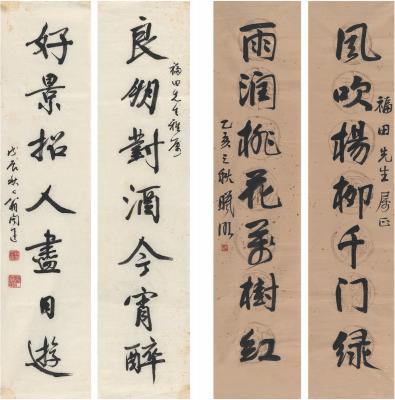 风吹杨柳千门绿
福田先生属正
雨润桃花万樹红
乙亥之秋
良朋對酒今宵醉
福田先生雅属
好景招人盡日遊
戊辰秋
翁闿运